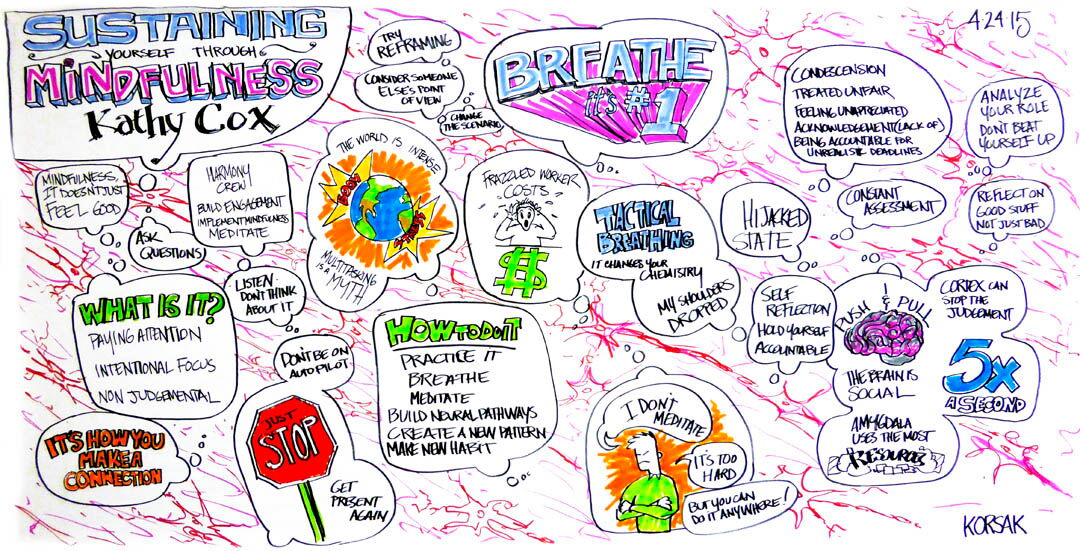 SUSTAINING
YOURSELF THROUGH
MINDFULNESS
Kathy Cox
TRY
REFRAMING
CONSIDER SOMEONE
ELSE'S POINT
OF VIEW
CHANGE
THE SCENARIO
BREATHE
it's #1
4.24.15
CONDESCENSION
TREATED UNFAIR
FEELING UNAPRECIATED
ACKNOWLEDGEMENT (LACK OF)
BEING ACCOUNTABLE FOR
UNREALISTIC DEADLINES
ANALYZE
YOUR ROLE
DON'T BEAT
YOURSELF UP
MINDFULNESS,
IT DOESN'T JUST
FEEL GOOD
HARMONY
CREW!
BUILD ENGAGEMENT
IMPLEMENT MINDFULNESS
MEDITATE
ASK
QUESTIONS
THE WORLD IS INTENSE
MULTITASKING
IS A MYTH
FRAZZLED WORKER
COSTS?
$
TACTICAL
BREATHING
IT CHANGES YOUR
CHEMISTRY
MY SHOULDERS
DROPPED
HIJACKED
STATE
CONSTANT
ASSESSMENT
REFLECT ON
GOOD STUFF
NOT JUST BAD
WHAT IS IT?
PAYING ATTENTION
INTENTIONAL FOCUS
NON JUDGEMENTAL
LISTEN
DON'T THINK
ABOUT IT
DON'T BE ON
AUTO PILOT
HOW TO DO IT
PRACTICE IT
BREATHE
MEDITATE
BUILD NEURAL PATHWAYS
CREATE A NEW PATTERN
MAKE NEW HABIT
SELF
REFLECTION
HOLD YOURSELF
ACCOUNTABLE
PUSH & PULL
THE BRAIN IS
SOCIAL
AMYGDALA
USES THE MOST
RESOURCES
CORTEX CAN
STOP THE
JUDGEMENT
5x
A SECOND
IT'S HOW YOU
MAKE A
CONNECTION
JUST
STOP
GET
PRESENT
AGAIN
I DON'T
MEDITATE
IT'S TOO
HARD
BUT YOU CAN
DO IT ANYWHERE!
KORSAK